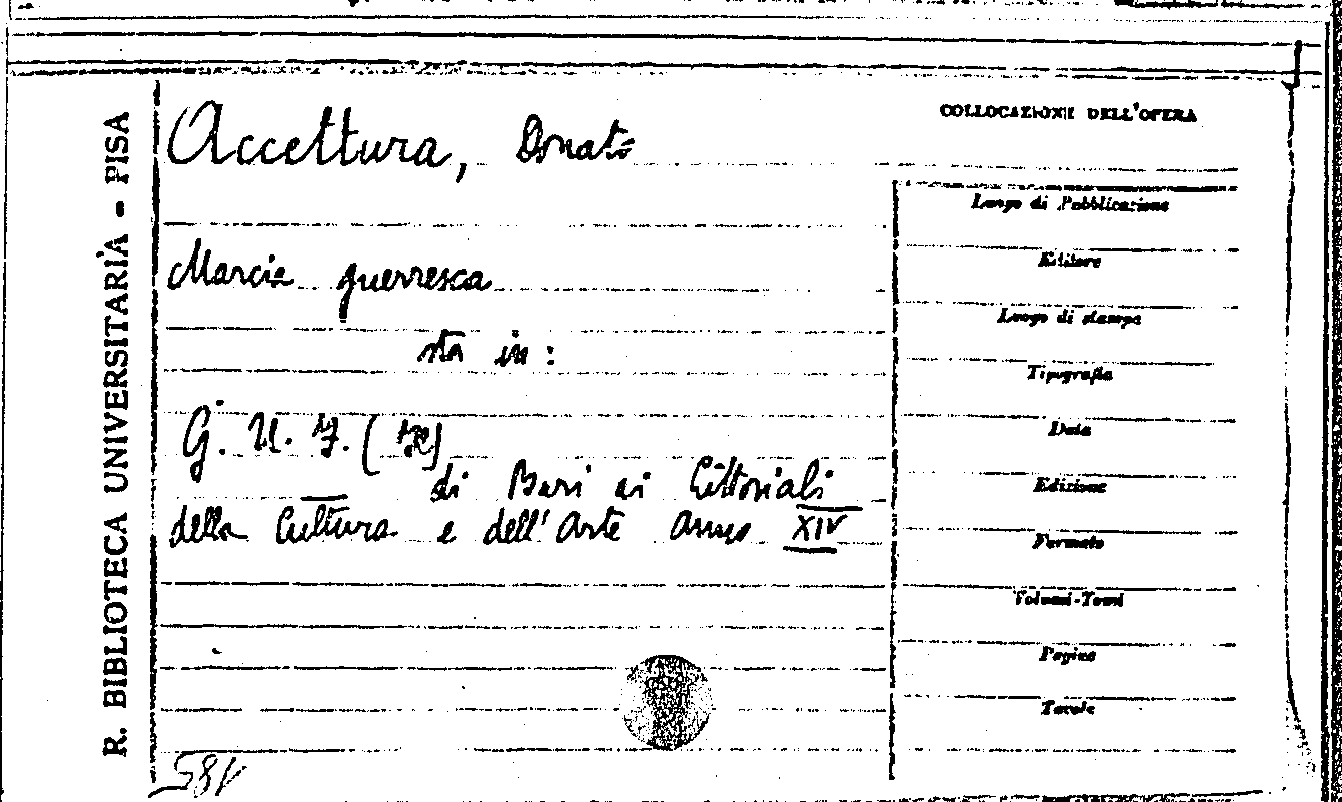 R. BIBLIOTECA UNIVERSITARIA - PISA
Accettura, Donato
Marcia guerresca
sta in:
G. U. F. (
di Bari ai Littoriali
della Cultura e dell'Arte Anno XIV
COLLOCAZIONE DELL'OPERA
Luogo di Pubblicazione
Editore
Luogo di stampa
Tipografia
Data
Edizione
Formato
Volumi-Tomi
Pagine
Tavole